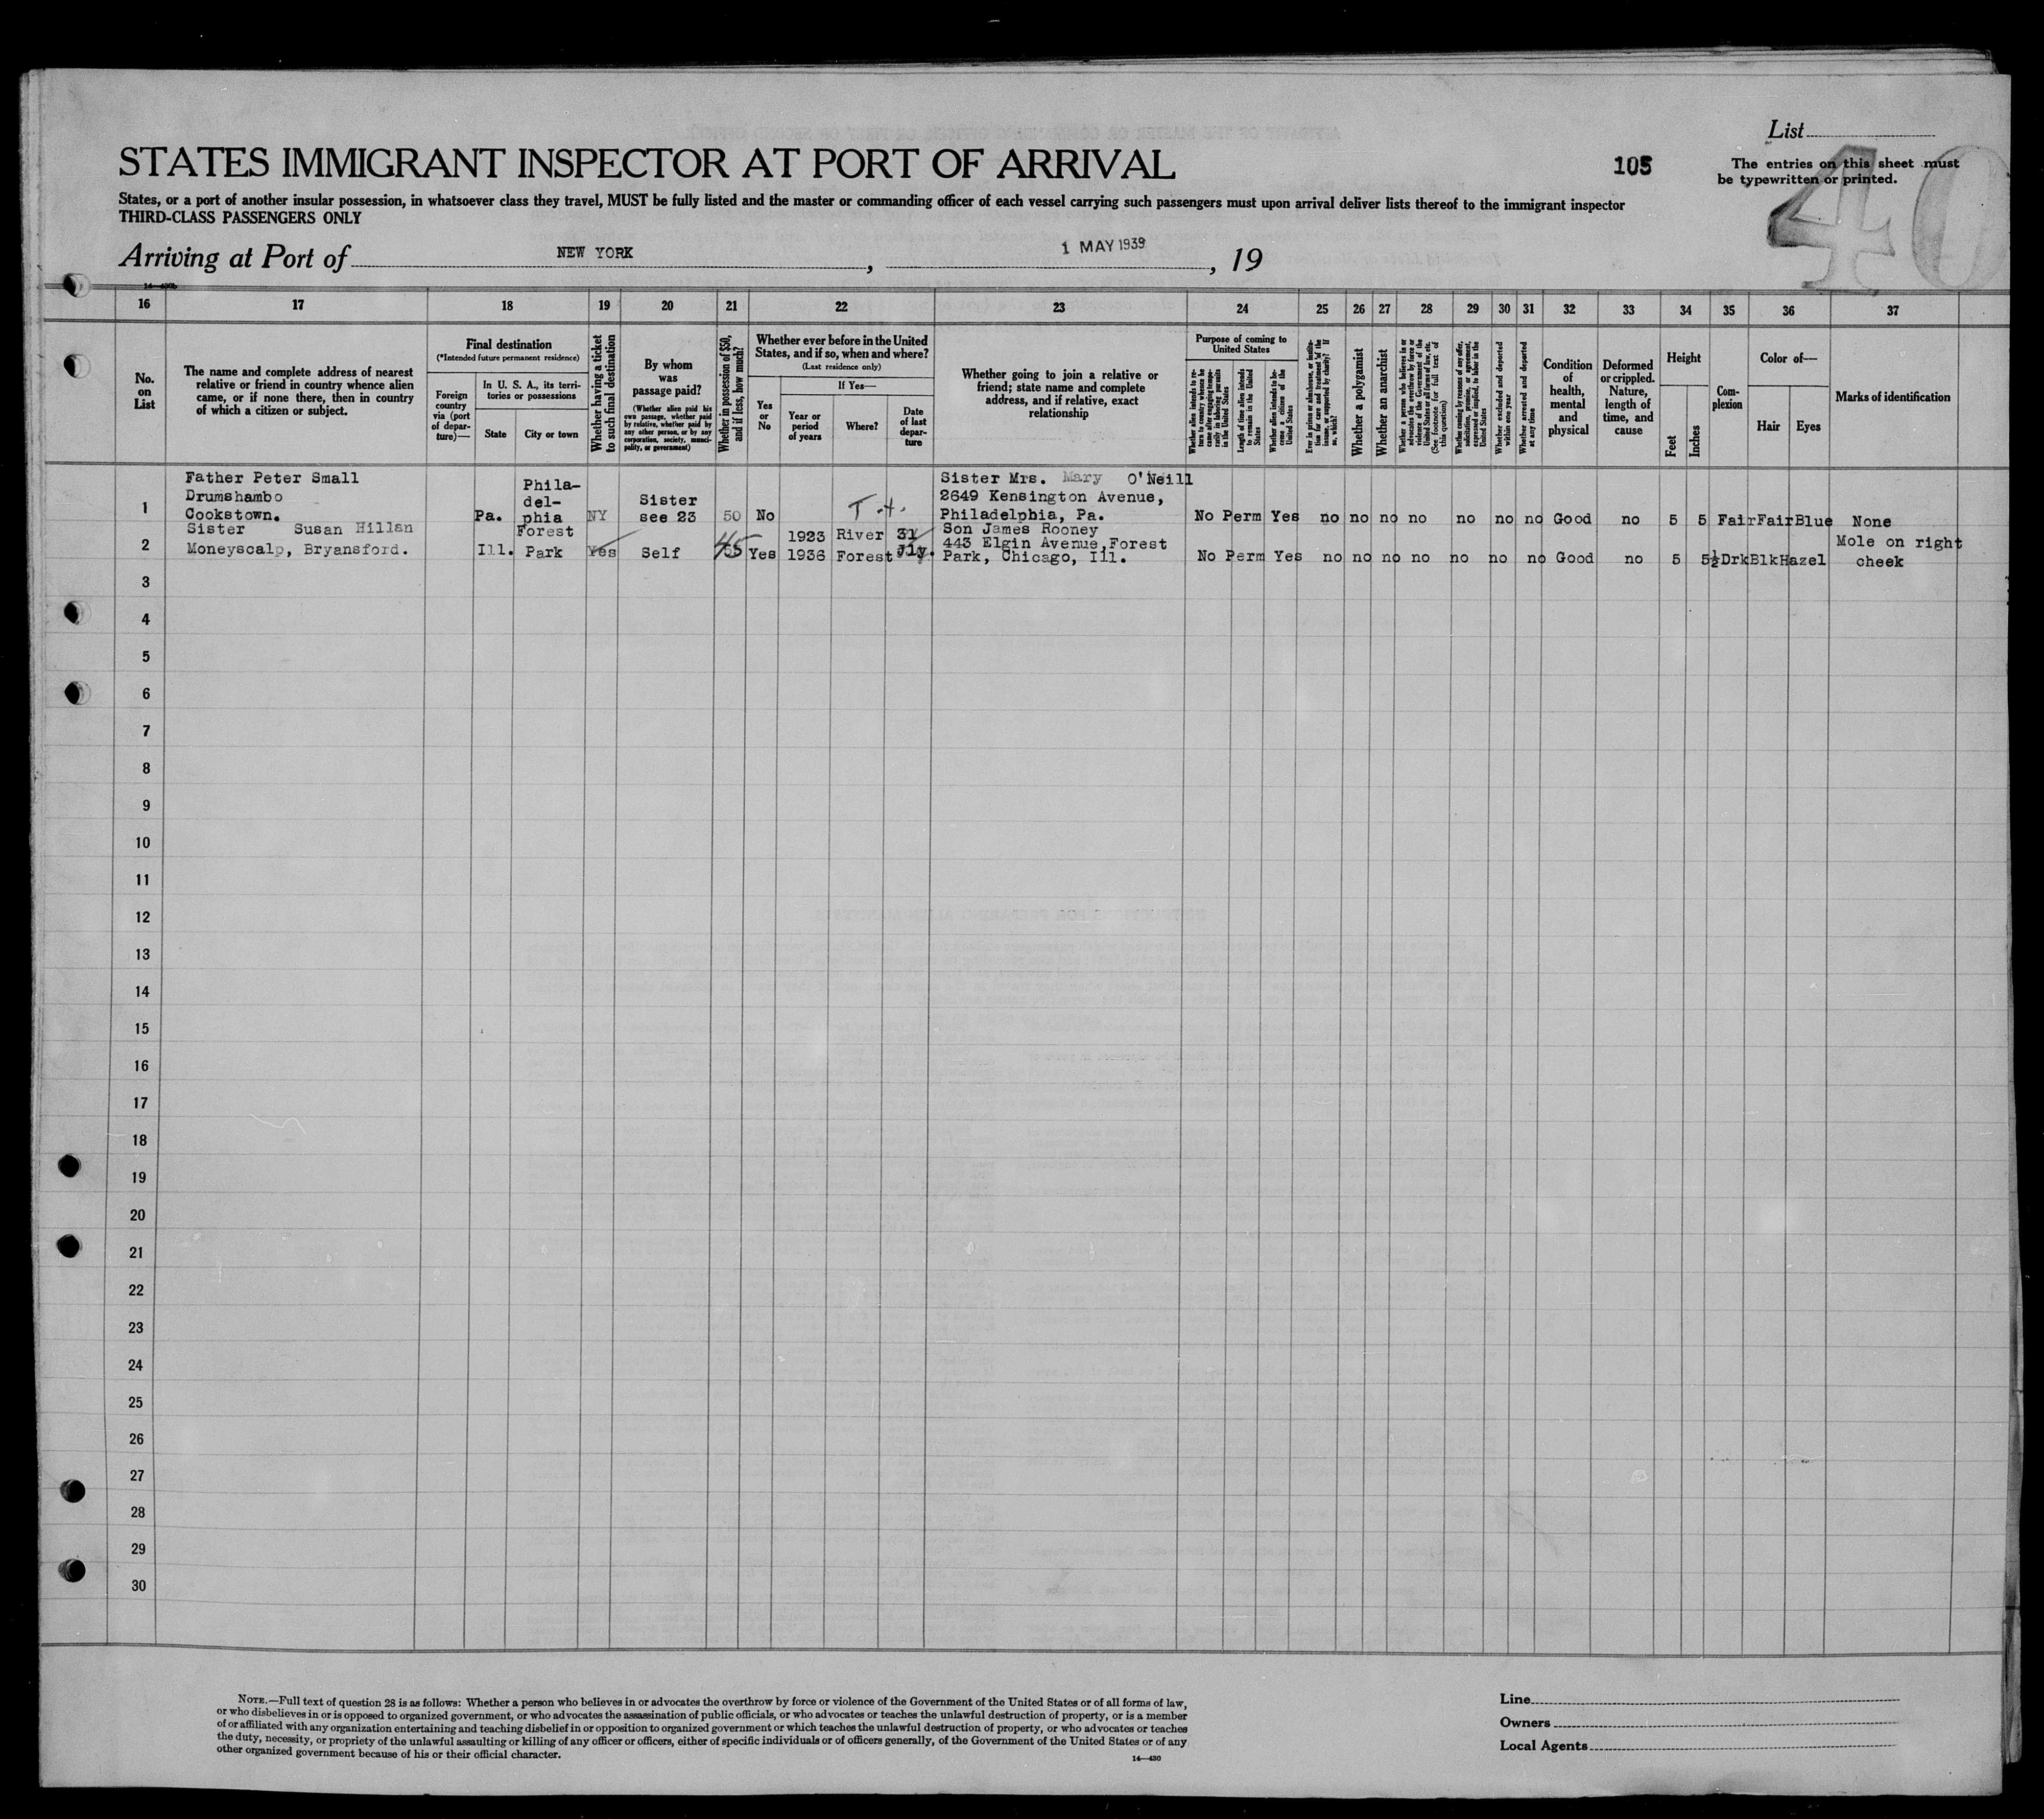 List
STATES IMMIGRANT INSPECTOR AT PORT OF ARRIVAL
105
The entries on this sheet must
be typewritten or printed.
40
States, or a port of another insular possession, in whatsoever class they travel, MUST be fully listed and the master or commanding officer of each vessel carrying such passengers must upon arrival deliver lists thereof to the immigrant inspector
THIRD-CLASS PASSENGERS ONLY
Arriving at Port of NEW YORK , 1 MAY 1939 , 19
16 17 18 19 20 21 22 23 24 25 26 27 28 29 30 31 32 33 34 35 36 37
No.
on
List
The name and complete address of nearest
relative or friend in country whence alien
came, or if none there, then in country
of which a citizen or subject.
Final destination
(*Intended future permanent residence)
Foreign
country
via (port
of depar-
ture)—
In U. S. A., its terri-
tories or possessions
State
City or town
Whether having a ticket
to such final destination
By whom
was
passage paid?
(Whether alien paid his
own passage, whether paid
by relative, whether paid by
any other person, or by any
corporation, society, munici-
pality, or government)
Whether in possession of $50,
and if less, how much?
Whether ever before in the United
States, and if so, when and where?
(Last residence only)
Yes
or
No
If Yes—
Year or
period
of years
Where?
Date
of last
depar-
ture
Whether going to join a relative or
friend; state name and complete
address, and if relative, exact
relationship
Purpose of coming to
United States
Whether alien intends to re-
turn to country whence he
came after engaging tempo-
rarily in laboring pursuits
in the United States
Length of time alien intends
to remain in the United
States
Whether alien intends to be-
come a citizen of the
United States
Ever in prison or almshouse, or institu-
tion for care and treatment of the
insane, or supported by charity? If
so, which?
Whether a polygamist
Whether an anarchist
Whether a person who believes in or
advocates the overthrow by force or
violence of the Government of the
United States or all forms of law, etc.
(See footnote for full text of
this question)
Whether coming by reason of any offer,
solicitation, promise, or agreement,
expressed or implied, to labor in the
United States
Whether excluded and deported
within one year
Whether arrested and deported
at any time
Condition
of
health,
mental
and
physical
Deformed
or crippled.
Nature,
length of
time, and
cause
Height
Feet
Inches
Com-
plexion
Color of—
Hair
Eyes
Marks of identification
1
Father Peter Small
Drumshambo
Cookstown.
Pa.
Phila-
del-
phia
NY
Sister
see 23
50
No
T.
Sister Mrs. Mary O'Neill
2649 Kensington Avenue,
Philadelphia, Pa.
No Perm Yes no no no no no no no Good no 5 5 Fair Fair Blue None
2
Sister Susan Hillen
Moneyscalp, Bryansford.
Ill.
Forest
Park
Yes
Self
45
Yes
1923
1936
River
Forest
31
Jly.
Son James Rooney
443 Elgin Avenue, Forest
Park, Chicago, Ill.
No Perm Yes no no no no no no no Good no 5 5½ Drk Blk Hazel
Mole on right
cheek
3
4
5
6
7
8
9
10
11
12
13
14
15
16
17
18
19
20
21
22
23
24
25
26
27
28
29
30
NOTE.—Full text of question 28 is as follows: Whether a person who believes in or advocates the overthrow by force or violence of the Government of the United States or of all forms of law,
or who disbelieves in or is opposed to organized government, or who advocates the assassination of public officials, or who advocates or teaches the unlawful destruction of property, or is a member
of or affiliated with any organization entertaining and teaching disbelief in or opposition to organized government or which teaches the unlawful destruction of property, or who advocates or teaches
the duty, necessity, or propriety of the unlawful assaulting or killing of any officer or officers, either of specific individuals or of officers generally, of the Government of the United States or of any
other organized government because of his or their official character.
14—430
Line
Owners
Local Agents